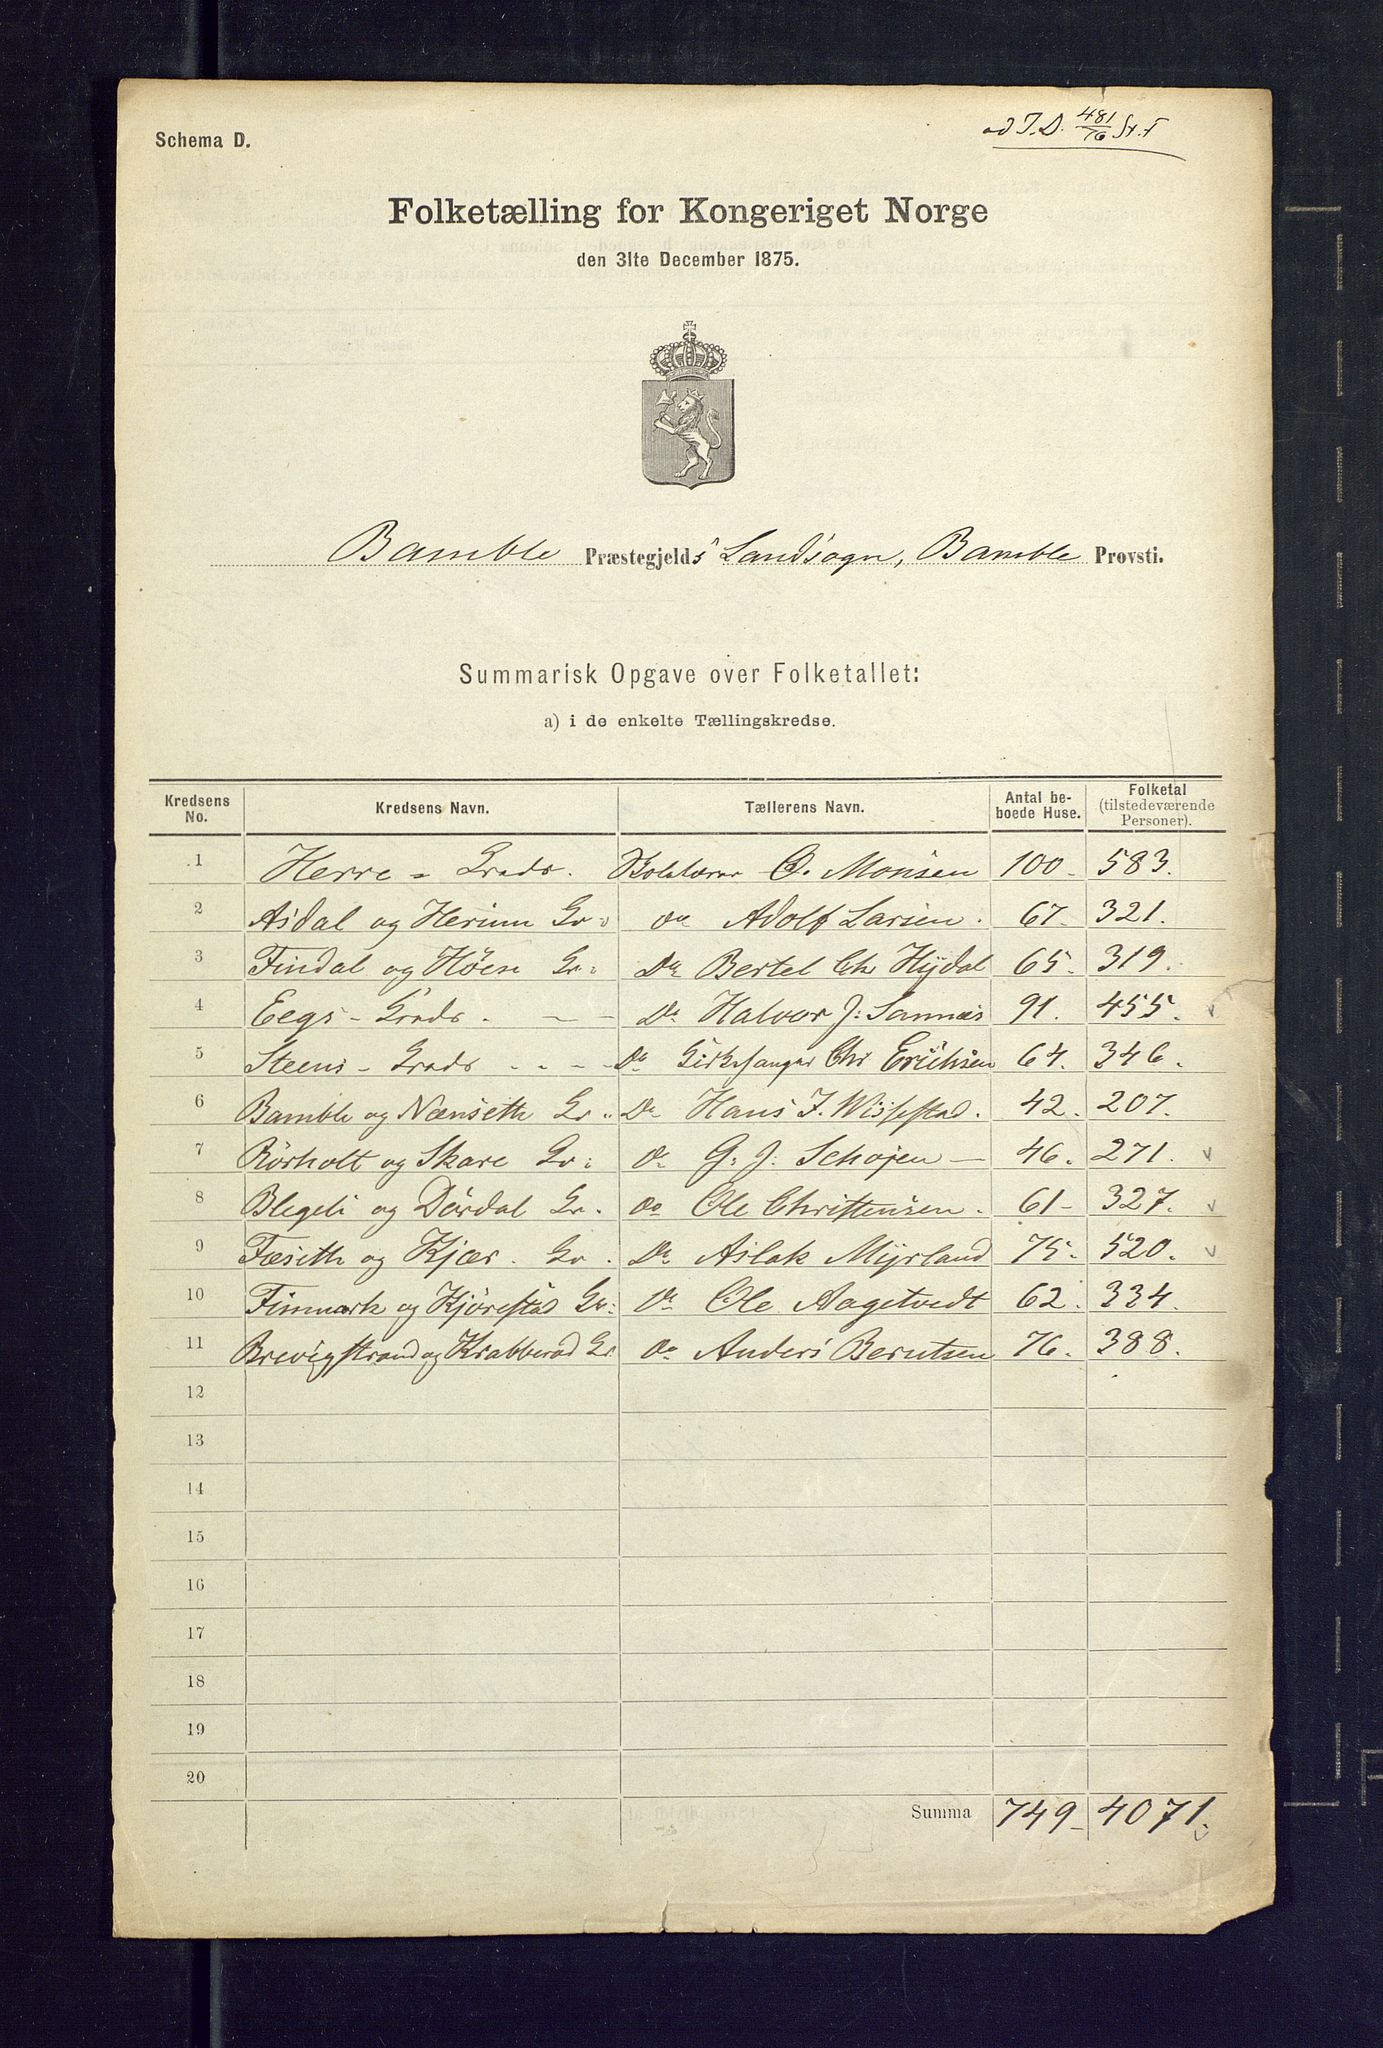 ad J.D. 481/76 St. F
Schema D.
Folketælling for Kongeriget Norge
den 31te December 1875.
Bamble Præstegjelds Landsogn, Bamble Provsti.
Summarisk Opgave over Folketallet:
a) i de enkelte Tællingskredse.
Kredsens No. Kredsens Navn. Tællerens Navn. Antal beboede Huse. Folketal (tilstedeværende Personer).
1 Herre - Greds. Skolelærer O. Monsen 100 - 583.
2 Asdal og Herum Gr. do Adolf Larsen. 67. 321.
3 Findal og Høen Gr: Do Bertel Chr Hydal 65. 319.
4 Eegs - Greds. - - Do Halvor J: Sannes 91. 455.
5 Steens - Greds . . - - Do Kirkesanger Chr Erichsen 64. 346.
6 Bamble og Nænseth Gr. Do Hans J. Wissestad. 42. 207.
7 Rörholt og Skare Gr: do G: J. Schøjen - 46. 271.
8 Blegeli og Dördal Gr. do Ole Christensen. 61 - 327.
9 Fæseth og Kjær. Gr. Do Aslak Myrland 75. 520.
10 Finmark og Kjørestad Gr: Do Ole Aagetvedt 62. 334.
11 Brevigstrand og Krabberød Gr. do Anders Berntsen 76. 388.
12
13
14
15
16
17
18
19
20
Summa 749 - 4071.